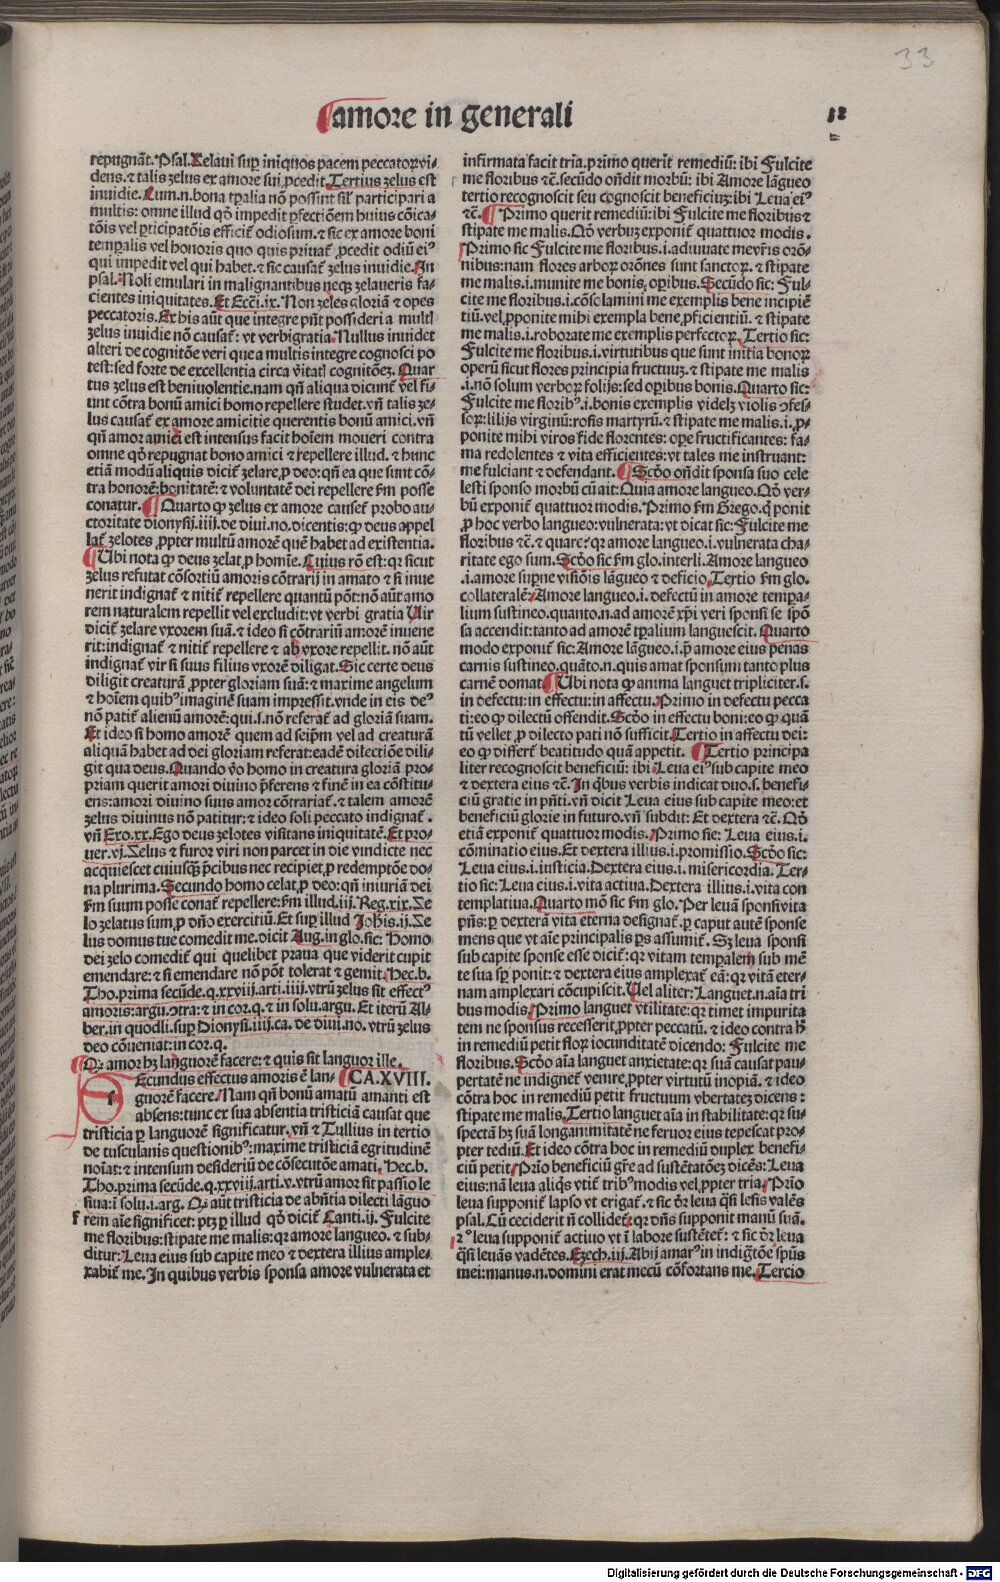 33
amore in generali
12
repugnãt. Psal. Zelavi sup iniquos pacem peccatorꝝ vi-
dens. ⁊ talis zelus ex amore sui ꝓcedit. Tertius zelus est
inuidie. Cum .n. bona tꝑalia nõ possint siĺ participari a
multis: omne illud qđ impedit ꝑfectiõem huius cõica-
tõis vel ꝑticipatõis efficit̃ odiosum. ⁊ sic ex amore boni
temꝑalis vel honoris quo quis priuat̃ ꝓcedit odiũ eiꝰ
qui impedit vel qui habet. ⁊ sic causat̃ zelus inuidie. In
psal. Noli emulari in malignantibus necꝫ zelaueris fa-
cientes iniquitates. Et Ecci. ix. Non zeles gloriã ⁊ opes
peccatoris. Ex his aũt que integre pñt possideri a multĩ
zelus inuidie nõ causat̃: vt verbigratia. Nullus inuidet
alteri de cognitõe veri que a multis integre cognosci po
test: sed forte de excellentia circa ṽitatĩ cognitõeʒ. Quar
tus zelus est beniuolentie. nam qñ aliqua dicunt̃ vel fi-
unt cõtra bonũ amici homo repellere studet. vñ talis ze-
lus causat̃ ex amore amicitie querentis bonũ amici. vñ
qñ amor amici est intensus facit hoĩem moueri contra
omne qđ repugnat bono amici ⁊ repellere illud. ⁊ hunc
etiã modũ aliquis dicit̃ zelare ꝓ deo: qñ ea que sunt cõ-
tra honorẽ: bonitatẽ: ⁊ voluntatẽ dei repellere ẜm posse
conatur. ¶ Quarto ꝙ zelus ex amore causet̃ probo au-
ctoritate dionysij .iiij. de diui. no. dicentis: ꝙ deus appel
lat̃ zelotes ꝓpter multũ amorẽ quẽ habet ad existentia.
¶ Ubi nota ꝙ deus zelat ꝓ homĩe. Cuius rõ est: qꝛ sicut
zelus refutat cõsortiũ amoris cõtrarij in amato ⁊ si inue
nerit indignat̃ ⁊ nitit̃ repellere quantũ põt: nõ aũt amo
rem naturalem repellit vel excludit: vt verbi gratia Uir
dicit̃ zelare vxorem suã. ⁊ ideo si cõtrariũ amorẽ inuene
rit: indignat̃ ⁊ nitit̃ repellere ⁊ ab vxore repellit. nõ aũt
indignat̃ vir si suus filius vxorẽ diligat. Sic certe deus
diligit creaturã ꝓpter gloriam suã: ⁊ maxime angelum
⁊ hoĩem quibꝰ imaginẽ suam impressit. vnde in eis deꝰ
nõ patit̃ alienũ amorẽ: qui .s. nõ referat̃ ad gloriã suam.
Et ideo si homo amorẽ quem ad seip̃m vel ad creaturã
aliquã habet ad dei gloriam referat: eadẽ dilectiõe dili-
git qua deus. Quando ṽo homo in creatura gloriã pro-
priam querit amori diuino ꝑferens ⁊ finẽ in ea cõstitu-
ens: amori diuino suus amor cõtrariat̃. ⁊ talem amorẽ
zelus diuinus nõ patitur: ⁊ ideo soli peccato indignat̃.
vñ Exo. xx. Ego deus zelotes visitans iniquitatẽ. Et pro-
uer. vj. Zelus ⁊ furor viri non parcet in die vindicte nec
acquiescet cuiusqꝫ ꝑcibus nec recipiet ꝓ redemptõe do-
na plurima. Secundo homo celat ꝓ deo: qñ iniuriã dei
ẜm suum posse conat̃ repellere: ẜm illud .iij. Reg. xix. Ze
lo zelatus sum ꝓ dño exercitiũ. Et suꝑ illud Johis. ij. Ze
lus domus tue comedit me. dicit Aug. in glo. sic: Homo
dei zelo comedit̃ qui quelibet praua que viderit cupit
emendare: ⁊ si emendare nõ põt tolerat ⁊ gemit. Hec. b.
Tho. prima secũde. q. xxviij. arti. iiij. vtrũ zelus sit effectꝰ
amoris: argu. ↄtra: ⁊ in cor. q. ⁊ in solu. argu. Et iterũ Al-
ber. in quodli. suꝑ Dionysi. iiij. ca. de diui. no. vtrũ zelus
deo cõueniat: in cor. q.
¶ Qꝙ amor hʒ languorẽ facere: ⁊ quis sit languor ille.
Ecundus effectus amoris ẽ lan- ¶ CA. XVIII.
s
guorẽ facere. Nam qñ bonũ amatũ amanti est
absens: tunc ex sua absentia tristiciã causat que
tristicia ꝑ languorẽ significatur. vñ ⁊ Tullius in tertio
de tusculanis questionibꝰ: maxime tristiciã egritudinẽ
noĩat: ⁊ intensum desideriũ de cõsecutõe amati. Hec. b.
Tho. prima secũde. q. xxviij. arti. v. vtrũ amor sit passio le
siua: ĩ solu. i. arg. Qꝙ aũt tristicia de abñtia dilecti lãguo
rem aĩe significet: ptʒ ꝑ illud qđ dicit̃ Canti. ij. Fulcite
me floribus: stipate me malis: qꝛ amore langueo. ⁊ sub-
ditur: Leua eius sub capite meo ⁊ dextera illius ample-
xabit̃ me. In quibus verbis sponsa amore vulnerata et
infirmata facit tria. primo querit remediũ: ibi Fulcite
me floribus ⁊c̃. secũdo oñdit morbũ: ibi Amore lãgueo
tertio recognoscit seu cognoscit beneficiuʒ: ibi Leua eiꝰ
⁊c̃. ¶ Primo querit remediũ: ibi Fulcite me floribus ⁊
stipate me malis. Qđ verbuʒ exponit̃ quattuor modis.
Primo sic Fulcite me floribus .i. adiuuate me vr̃is orõ-
nibus: nam flores arboꝝ orõnes sunt sanctoꝝ. ⁊ stipate
me malis .i. munite me bonis oꝑibus. Secũdo sic: Ful-
cite me floribus .i. cõsolamini me exemplis bene incipiẽ
tiũ. vel ꝓponite mihi exempla bene ꝓficientiũ. ⁊ stipate
me malis .i. roborate me exemplis perfectoꝝ. Tertio sic:
Fulcite me floribus .i. virtutibus que sunt initia bonoꝝ
operũ sicut flores principia fructuuʒ. ⁊ stipate me malis
.i. nõ solum verboꝝ folijs: sed oꝑibus bonis. Quarto sic:
Fulcite me floribꝰ .i. bonis exemplis videlʒ violis ↄfes-
soꝝ: lilijs virginũ: rosis martyrũ. ⁊ stipate me malis .i. ꝓ-
ponite mihi viros fide florentes: oꝑe fructificantes: fa-
ma redolentes ⁊ vita efficientes: vt tales me instruant:
me fulciant ⁊ defendant. ¶ Scđo oñdit sponsa suo cele
lesti sponso morbũ cũ ait: Quia amore langueo. Qđ ver-
bũ exponit̃ quattuor modis. Primo ẜm Grego. q̃ ponit
ꝓ hoc verbo langueo: vulnerata: vt dicat sic: Fulcite me
floribus ⁊c̃. ⁊ quare? qꝛ amore langueo .i. vulnerata cha-
ritate ego sum. Scđo sic ẜm glo. interli. Amore langueo
.i. amore suꝑne visiõis lãgueo ⁊ deficio. Tertio ẜm glo.
collateralẽ: Amore langueo .i. defectũ in amore tempa-
lium sustineo. quanto .n. ad amorẽ xp̃i veri sponsi se spõ
sa accendit: tanto ad amorẽ tꝑalium languescit. Quarto
modo exponit̃ sic: Amore lãgueo .i. ꝑ amore eius penas
carnis sustineo. quãto .n. quis amat sponsum tanto plus
carnẽ domat. ¶ Ubi nota ꝙ anima languet tripliciter .s.
in defectu: in effectu: in affectu. Primo in defectu pecca
ti: eo ꝙ dilectũ offendit. Scđo in effectu boni: eo ꝙ quã
tũ vellet ꝓ dilecto pati nõ sufficit. Tertio in affectu dei:
eo ꝙ differt̃ beatitudo quã appetit. ¶ Tertio principa
liter recognoscit beneficiũ: ibi Leua eiꝰ sub capite meo
⁊ dextera eius ⁊c̃. In qͥbus verbis indicat duo .s. benefi-
ciũ gratie in pñti. vñ dicit Leua eius sub capite meo: et
beneficiũ glorie in futuro. vñ subdit: Et dextera ⁊c̃. Qđ
etiã exponit̃ quattuor modis. Primo sic: Leua eius .i.
cõminatio eius. Et dextera illius .i. promissio. Scđo sic:
Leua eius .i. iusticia. Dextera eius .i. misericordia. Ter-
tio sic: Leua eius .i. vita actiua. Dextera illius .i. vita con
templatiua. Quarto mõ sic ẜm glo. Per leuã sponsi vita
pñs: ꝑ dexterã vita eterna designat̃. ꝑ caput autẽ sponse
mens que vt aĩe principalis ꝑs assumit̃. Sʒ leua sponsi
sub capite sponse esse dicit̃: qꝛ vitam tempalem sub mẽ
te sua sp̃ ponit: ⁊ dextera eius amplexat̃ eã: qꝛ vitã eter-
nam amplexari cõcupiscit. Uel aliter: Languet .n. aĩa tri
bus modis. Primo languet vtilitate: qꝛ timet impurita
tem ne sponsus recesserit ꝓpter peccatũ. ⁊ ideo contra h̃
in remediũ petit floꝝ iocunditatẽ dicendo: Fulcite me
floribus. Scđo aĩa languet anxietate: qꝛ suã causat pau-
pertatẽ ne indignet̃ venire ꝓpter virtutũ inopiã. ⁊ ideo
cõtra hoc in remediũ petit fructuum vbertateʒ dicens:
stipate me malis. Tertio languet aĩa in stabilitate: qꝛ su-
spectã hʒ suã longanimitatẽ ne feruor eius tepescat pro-
pter tediũ. Et ideo cõtra hoc in remediũ duplex benefi-
ciũ petit. Prĩo beneficiũ gr̃e ad sustẽtatõeʒ dicẽs: Leua
eius: nã leua aliqͥs vtit̃ tribꝰ modis vel ꝓpter tria. Prĩo
leua supponit̃ lapso vt erigat̃. ⁊ sic dr̃ leua q̃si lesis valẽs
psal. Cũ ceciderit ñ collidet̃: qꝛ dñs supponit manũ suã.
2ꝰ leua supponit̃ actiuo vt ĩ labore sustẽtet̃: ⁊ sic dr̃ leua
q̃si leuãs vadẽtes. Ezech. iij. Abij amarꝰ in indigtõe sp̃us
mei: manus .n. domini erat mecũ cõfortans me. Tercio
Digitalisierung gefördert durch die Deutsche Forschungsgemeinschaft - DFG